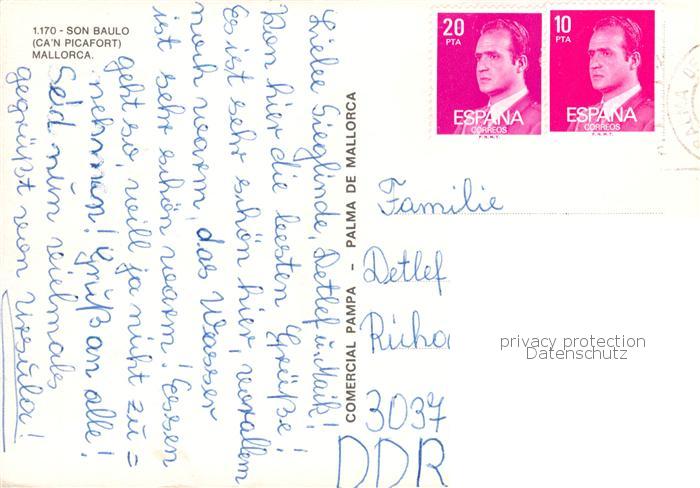 1.170 - SON BAULO
(CA'N PICAFORT)
MALLORCA.
Liebe Sieglinde, Detlef u. Maik!
Von hier die besten Grüße!
Es ist sehr schön hier, vorallem
noch warm, das Wasser
ist sehr schön warm! Essen
geht so, will ja nicht zu=
nehmen! Grüß an alle!
Seid nun vielmals
gegrüßt von Ursula!
COMERCIAL PAMPA - PALMA DE MALLORCA
20
PTA
ESPAÑA
CORREOS
F.N.M.T.
10
PTA
ESPAÑA
CORREOS
F.N.M.T.
PALMA
Familie
Detlef
Richa
privacy protection
Datenschutz
3037
DDR